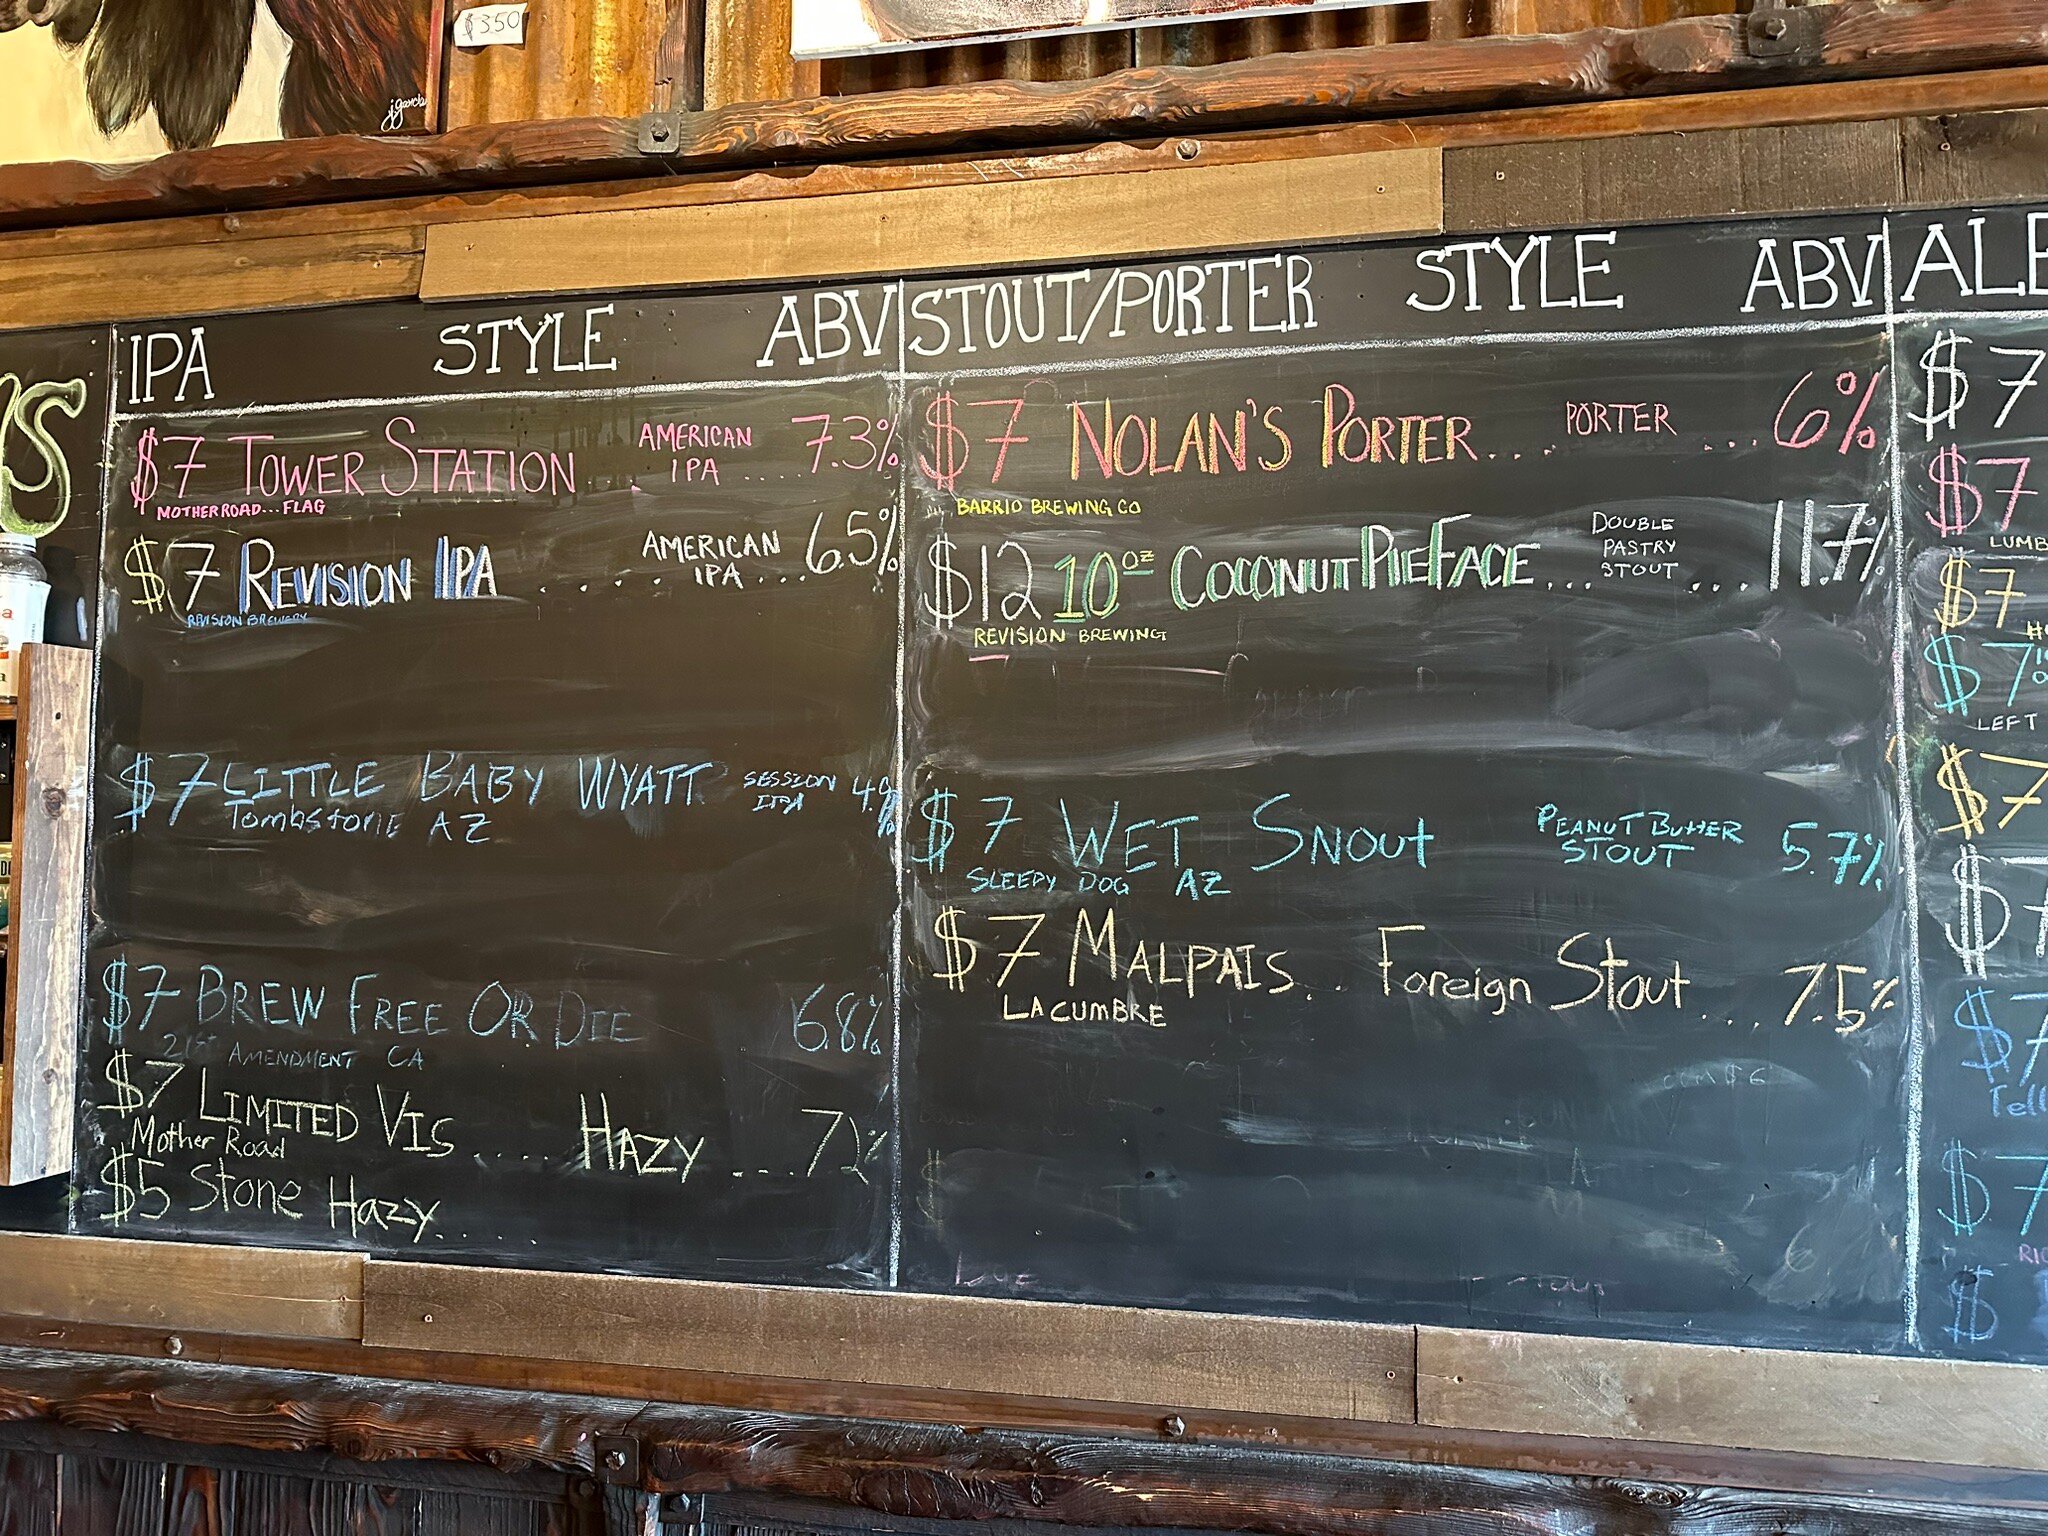 $350
jgarcia
IPA STYLE ABV
$7 TOWER STATION AMERICAN IPA .... 7.3%
MOTHER ROAD... FLAG
$7 REVISION IPA ..... AMERICAN IPA ... 6.5%
REVISION BREWERY
$7 LITTLE BABY WYATT SESSION IPA 4.9%
Tombstone AZ
$7 BREW FREE OR DIE 6.8%
21st AMENDMENT CA
$7 LIMITED VIS .... HAZY ... 7.2%
Mother Road
$5 Stone Hazy.....
STOUT/PORTER STYLE ABV
$7 NOLAN'S PORTER.... PORTER ... 6%
BARRIO BREWING CO
$12 10oz COCONUT PIE FACE... DOUBLE PASTRY STOUT ... 11.7%
REVISION BREWING
$7 WET SNOUT PEANUT BUTTER STOUT 5.7%
SLEEPY DOG AZ
$7 MALPAIS... Foreign Stout .... 7.5%
LA CUMBRE
ALE
$7
$7
LUMB
$7
$7
LEFT
$7
$7
$7
Tell
$7
$